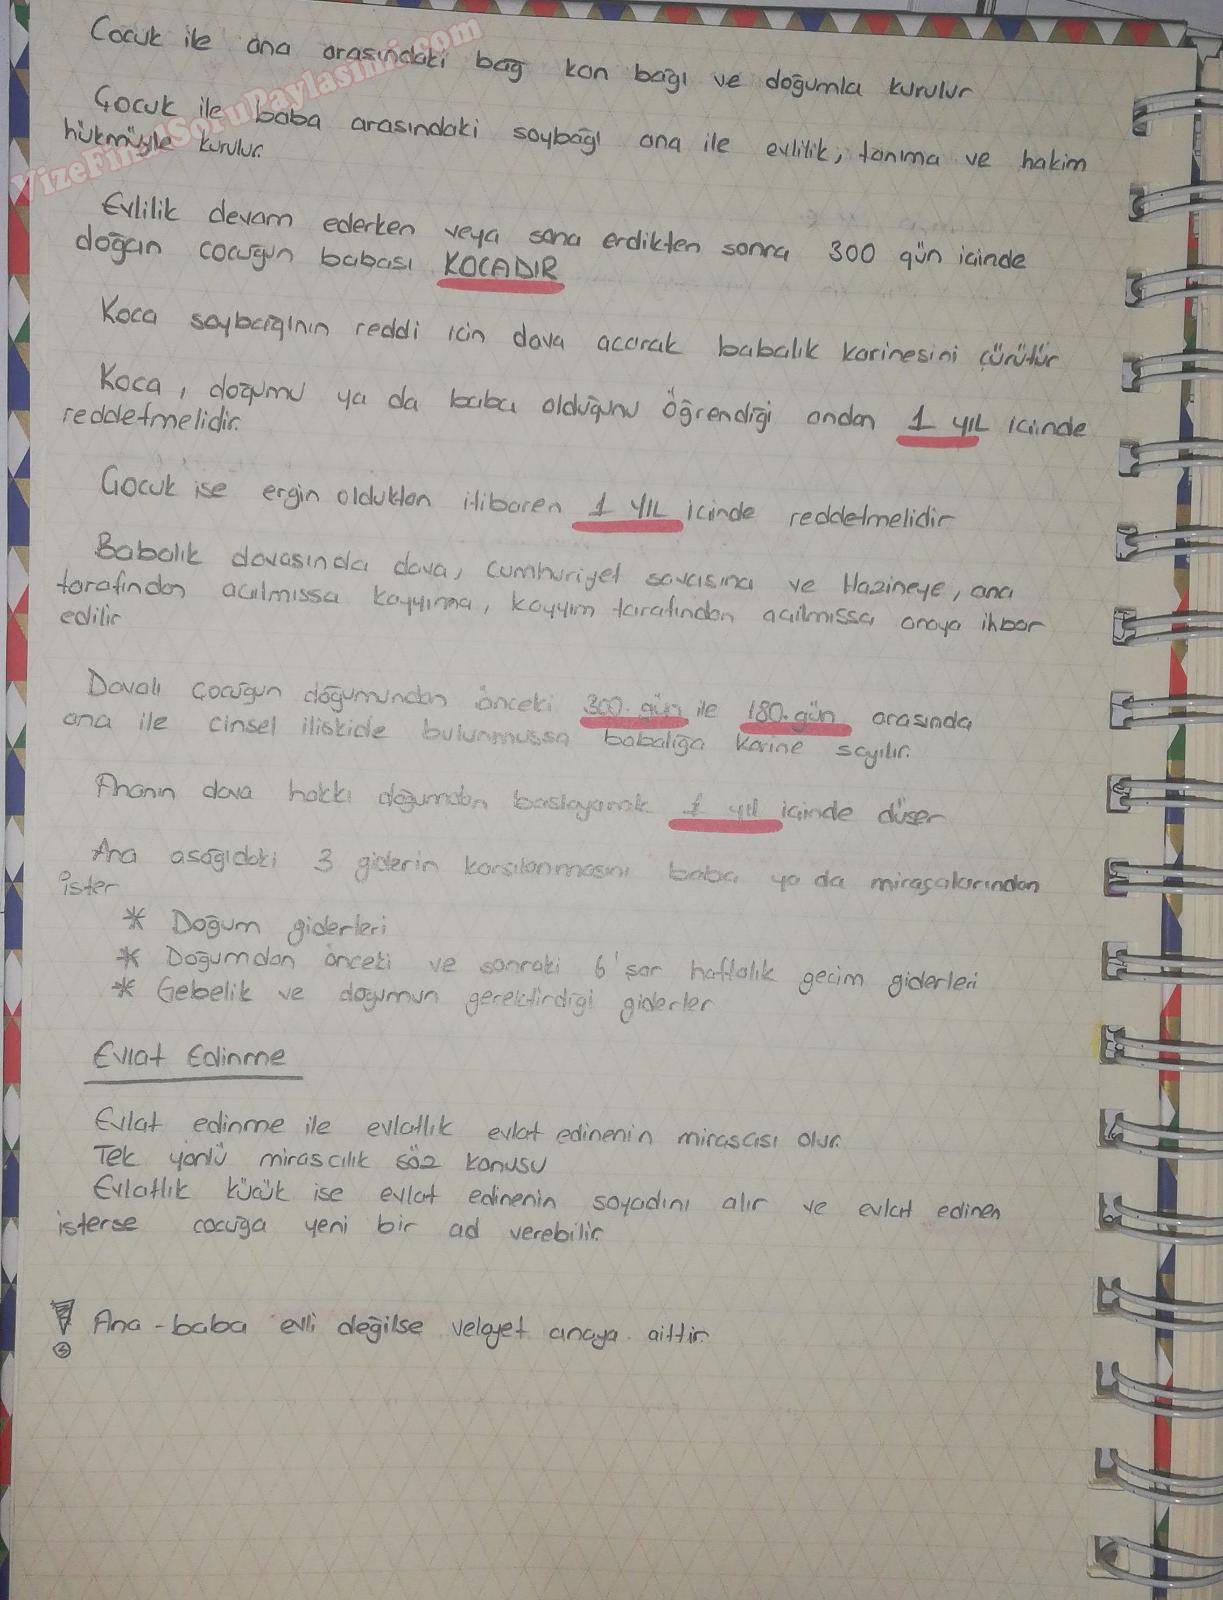 Çocuk ile ana arasındaki bağ kan bağı ve doğumla kurulur
Çocuk ile baba arasındaki soybağı ana ile evlilik, tanıma ve hakim
hükmüyle kurulur.
Evlilik devam ederken veya sona erdikten sonra 300 gün içinde
doğan çocuğun babası KOCADIR
Koca soybağının reddi için dava açarak babalık karinesini çürütür
Koca, doğumu ya da baba olduğunu öğrendiği andan 1 YIL içinde
reddetmelidir.
Çocuk ise ergin olduktan itibaren 1 YIL içinde reddetmelidir
Babalık davasında dava, Cumhuriyet savcısına ve Hazineye, ana
tarafından açılmışsa kayyıma, kayyım tarafından açılmışsa anaya ihbar
edilir
Davalı çocuğun doğumundan önceki 300. gün ile 180. gün arasında
ana ile cinsel ilişkide bulunmuşsa babalığa karine sayılır.
Ananın dava hakkı doğumdan başlayarak 1 yıl içinde düşer
Ana aşağıdaki 3 giderin karşılanmasını baba ya da mirasçılarından
ister
* Doğum giderleri
* Doğumdan önceki ve sonraki 6'şar haftalık geçim giderleri
* Gebelik ve doğumun gerektirdiği giderler
Evlat Edinme
Evlat edinme ile evlatlık evlat edinenin mirasçısı olur.
Tek yönlü mirasçılık söz konusu
Evlatlık küçük ise evlat edinenin soyadını alır ve evlat edinen
isterse çocuğa yeni bir ad verebilir.
! Ana - baba evli değilse velayet anaya aittir.
VizeFinalSoruPaylasimi.com